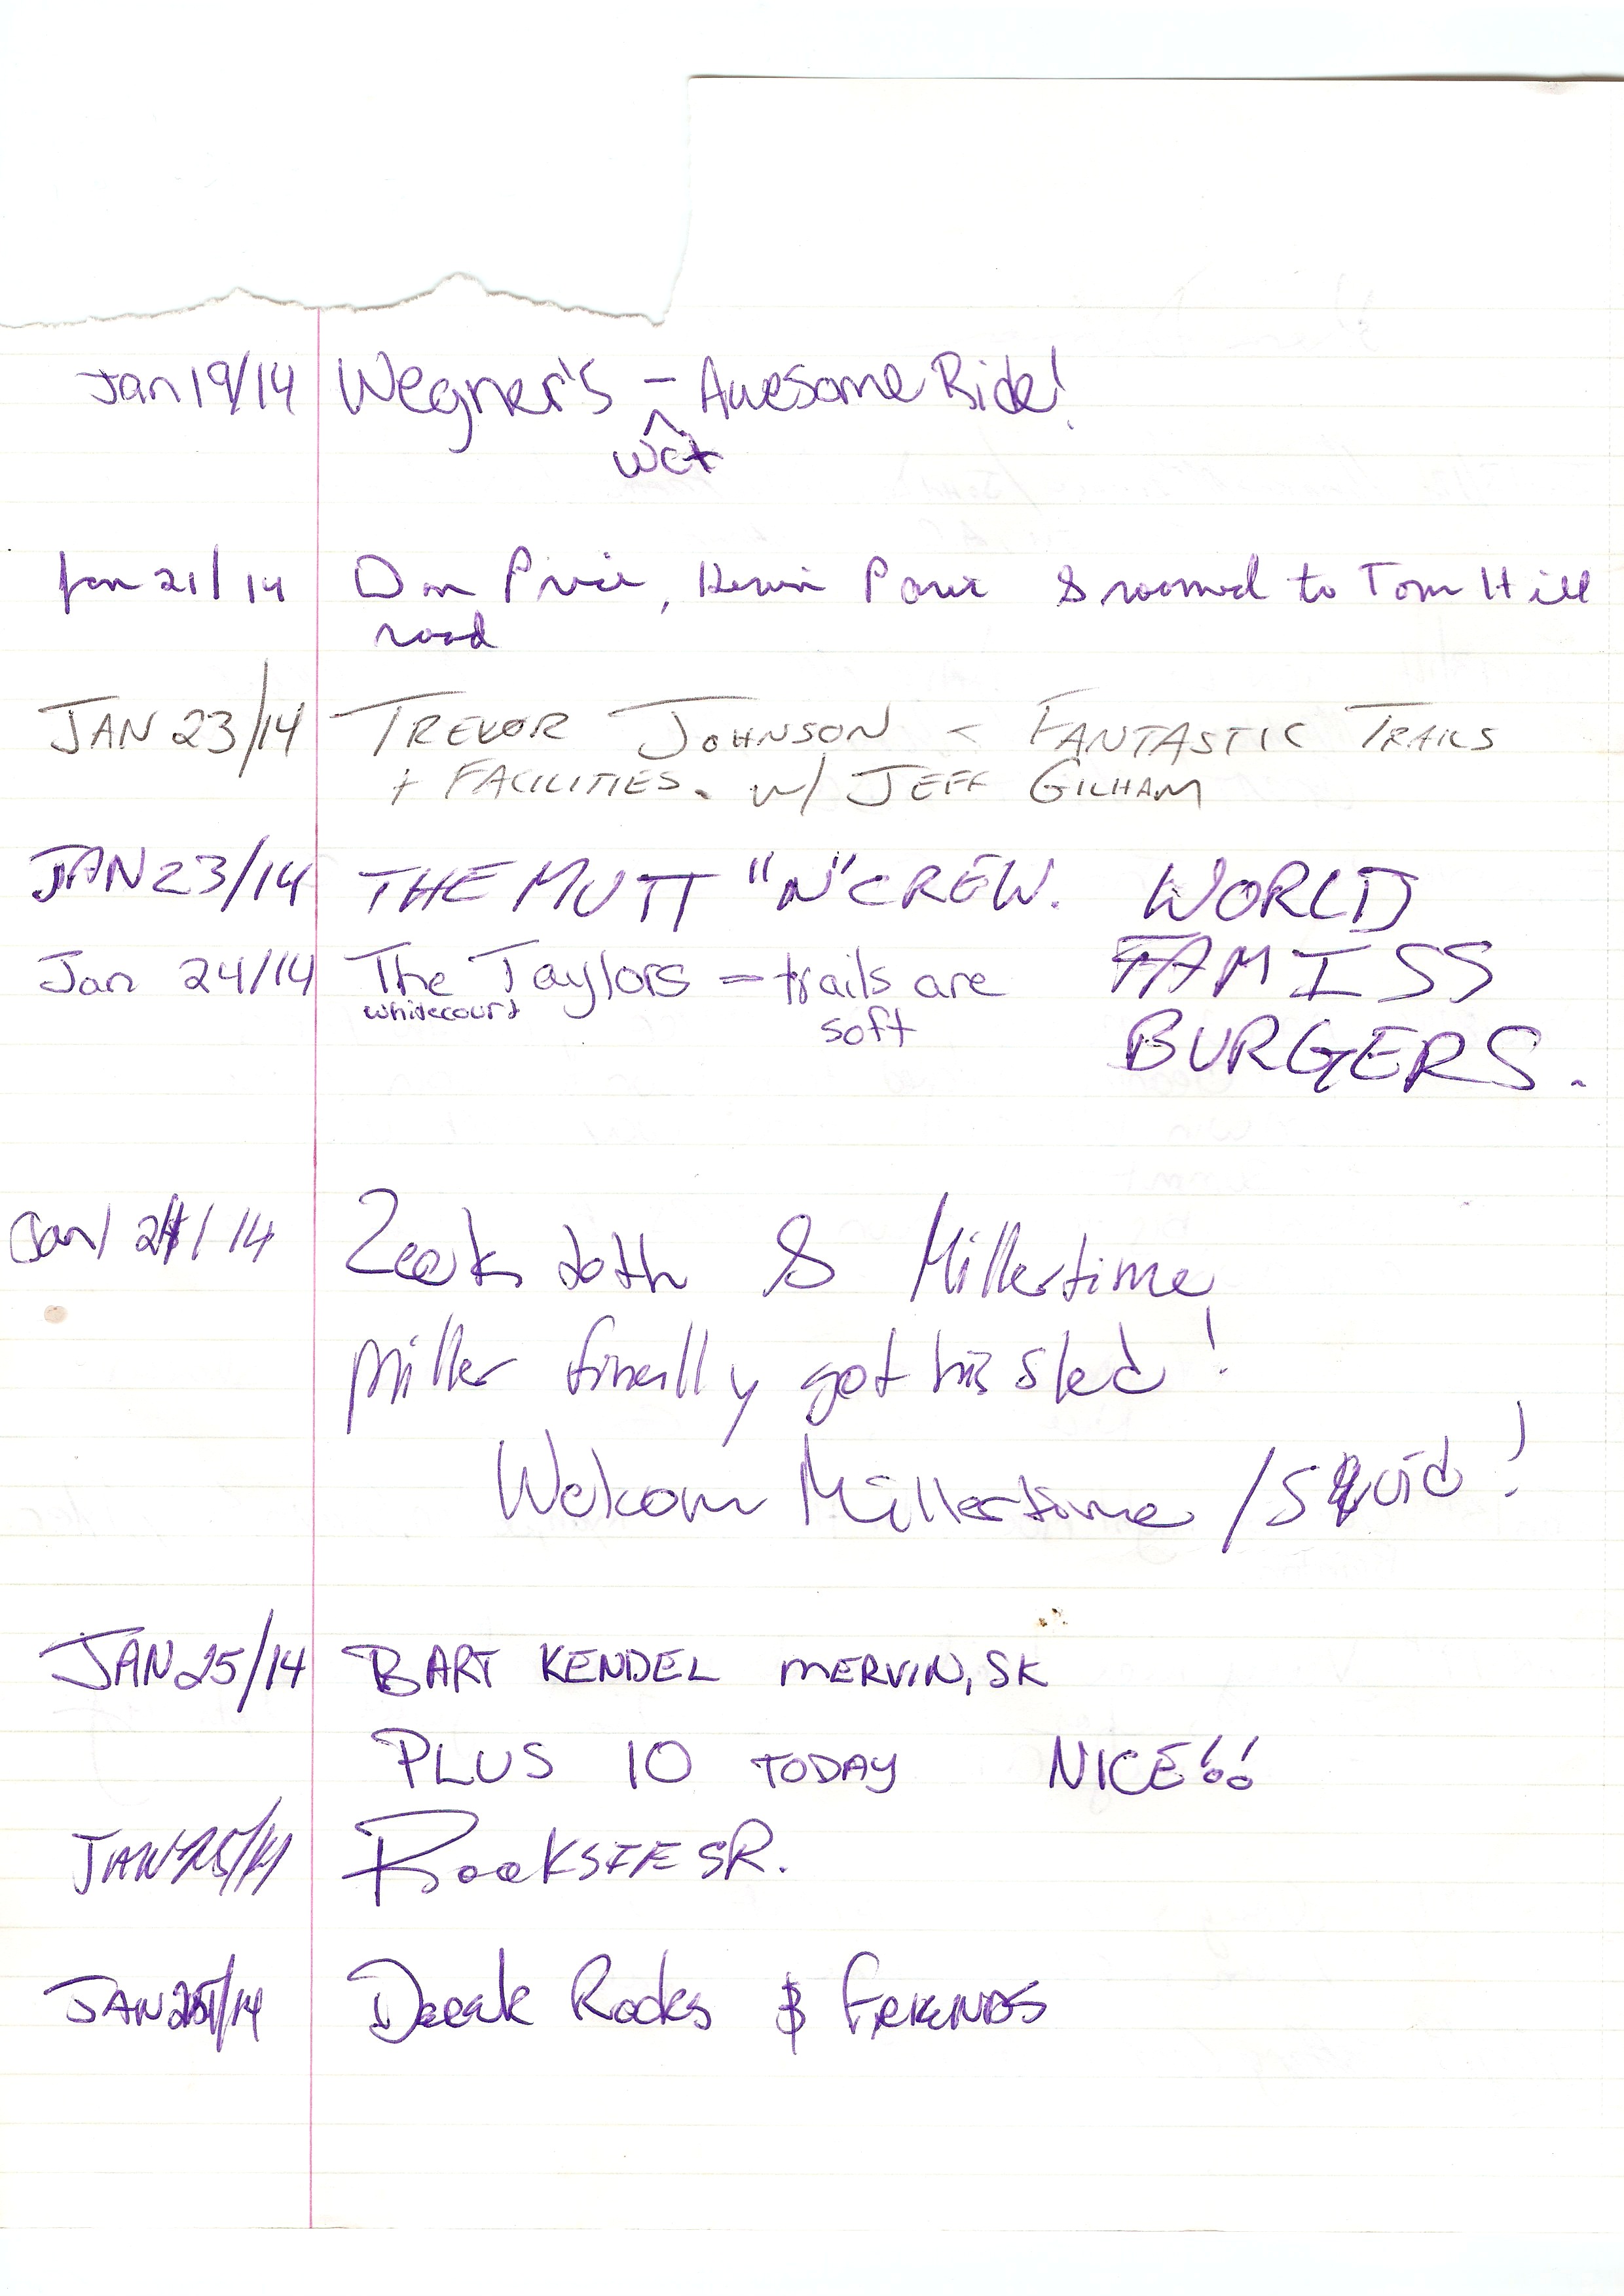 Jan 19/14 Wegner's - Awesome Ride!
wct
Jan 21/14 Don Price, Kevin groomed to Tom Hill
road
JAN 23/14 TREVOR JOHNSON - FANTASTIC TRAILS
+ FACILITIES. w/ JEFF GILHAM
JAN 23/14 THE MUTT "N" CREW. WORLD
FAMISS
BURGERS.
Jan 24/14 The Taylors - trails are
whitecourt soft
Jan 24/14 Zeek toth & Millertime
Miller finally got his sled!
Welcom Millertime / Squid!
JAN 25/14 BART KENDEL MERVIN, SK
PLUS 10 TODAY NICE!!
JAN 25/14 SR.
JAN 25/14 Derek Rocks & FRIENDS